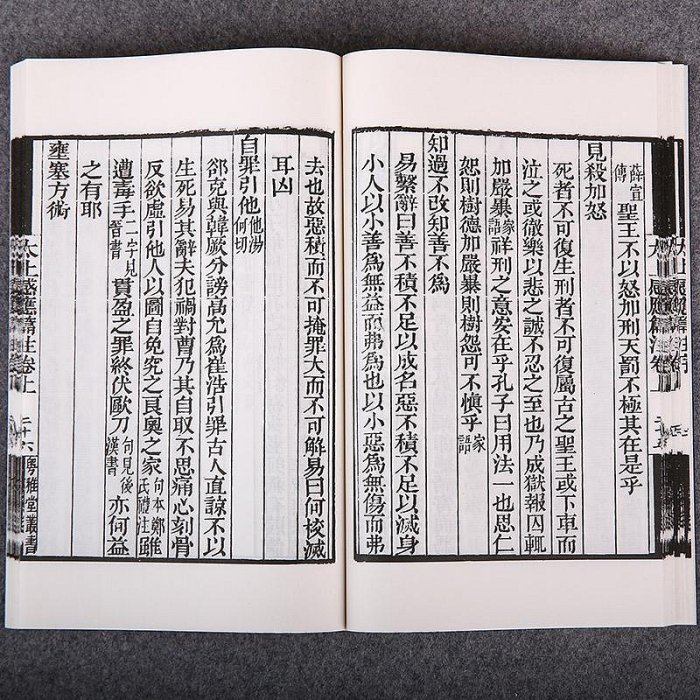 薛宣傳聖王不以怒加刑天罰不極其在是乎
見殺加怒
死者不可復生刑者不可復屬古之聖王或下車而
泣之或徹樂以悲之誠不忍之至也乃成獄報囚輒
加嚴暴家語祥刑之意安在乎孔子曰用法一也思仁
恕則樹德加嚴暴則樹怨可不慎乎家語
知過不改知善不爲
易繫辭曰善不積不足以成名惡不積不足以滅身
小人以小善爲無益而弗爲也以小惡爲無傷而弗
去也故惡積而不可掩罪大而不可解易曰何校滅
耳凶
自罪引他他湯何切
郤克與韓厥分謗高允爲崔浩引罪古人直諒不以
生死易其辭夫犯禍對曹乃其自取不思痛心刻骨
反欲虛引他人以圖自免究之良奧之家何本鄭氏體注雖
遭毒手二字見晉書貫盈之罪終伏歐刀句見後漢書亦何益
之有耶
壅塞方術
太上感應篇注卷上 三十六 粵雅堂叢書